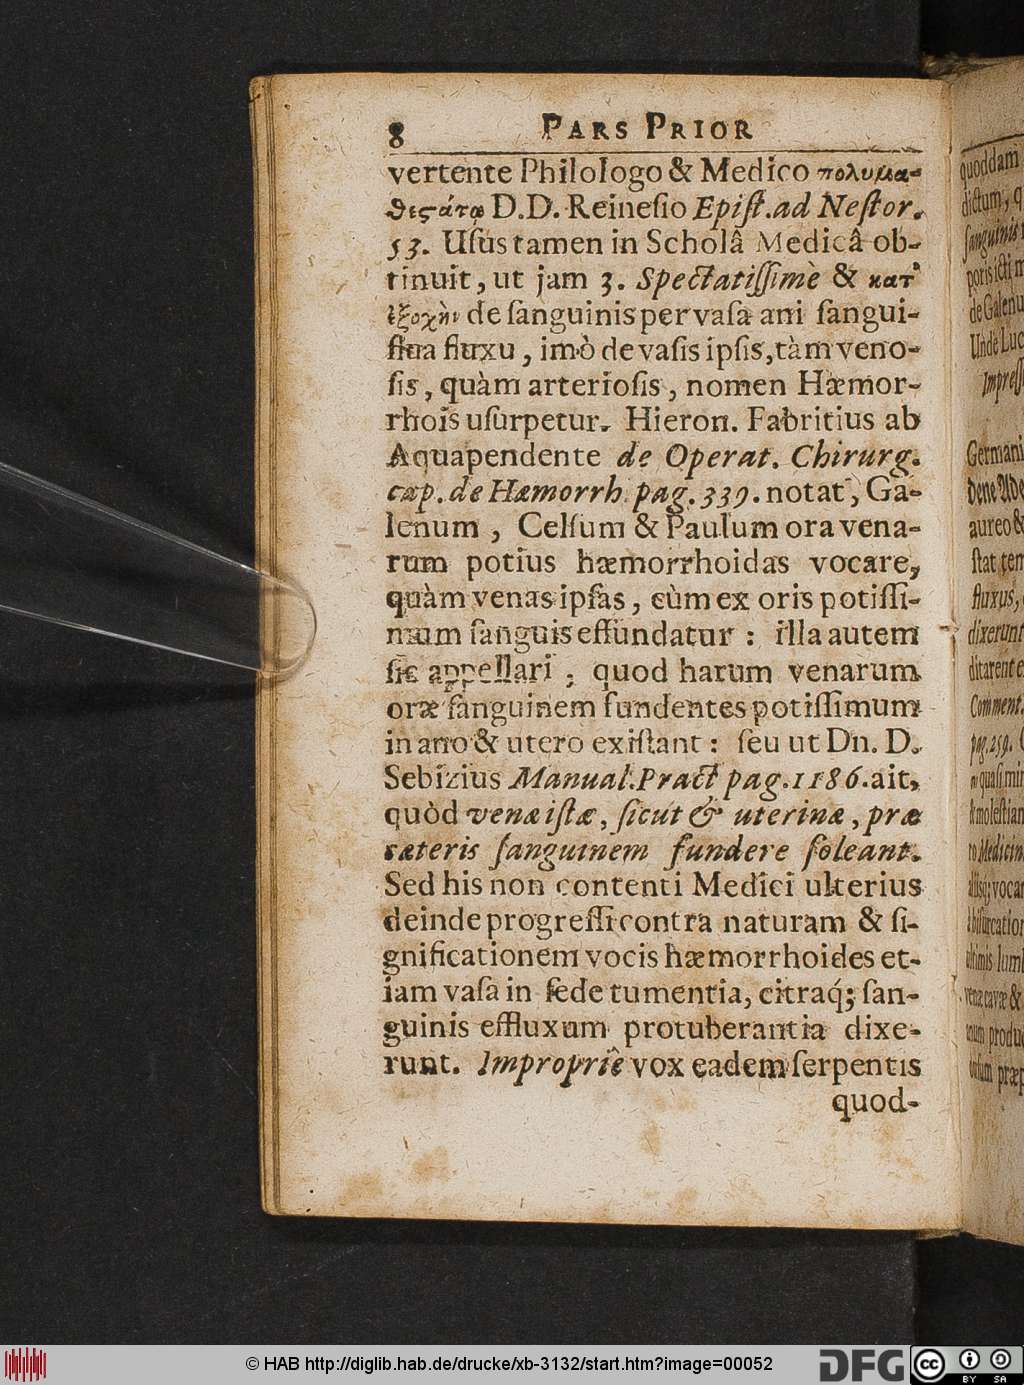 8 PARS PRIOR
vertente Philologo & Medico πολυμα-
θεςάτῳ D.D. Reinesio Epiſt. ad Neſtor.
53. Uſus tamen in Scholâ Medicâ ob-
tinuit, ut jam 3. Spectatiſſimè & κατ'
ἐξοχὴν de ſanguinis per vaſa ani ſangui-
flua fluxu, imò de vaſis ipſis, tàm veno-
ſis, quàm arterioſis, nomen Hæmor-
rhois uſurpetur. Hieron. Fabritius ab
Aquapendente de Operat. Chirurg.
cap. de Hæmorrh. pag. 339. notat, Ga-
lenum, Celſum & Paulum ora vena-
rum potius hæmorrhoidas vocare,
quàm venas ipſas, cùm ex oris potiſſi-
mum ſanguis effundatur: illa autem
ſic appellari; quod harum venarum
oræ ſanguinem fundentes potiſſimum
in ano & utero exiſtant: ſeu ut Dn. D.
Sebizius Manual. Pract pag. 1186. ait,
quòd venæ iſtæ, ſicut & uterinæ, præ
cæteris ſanguinem fundere ſoleant.
Sed his non contenti Medici ulterius
deinde progreſſi contra naturam & ſi-
gnificationem vocis hæmorrhoides et-
iam vaſa in ſede tumentia, citraq́; ſan-
guinis effluxum protuberantia dixe-
runt. Impropriè vox eadem ſerpentis
quod-
quoddam
dictum, q
ſanguinis
poris icti m
de Galenu
Unde Luc
Impreſſ
Germani
dene Ade
aureo &
ſtat tem
fluxus,
dixerunt
ditarent e
Comment.
pag. 259.
quaſi mi
& moleſtiam
ro Medicin
aliisq; vocar
biſurcation
ultimis lum
venæ cavæ &
produc
præp
© HAB http://diglib.hab.de/drucke/xb-3132/start.htm?image=00052
DFG
cc BY SA